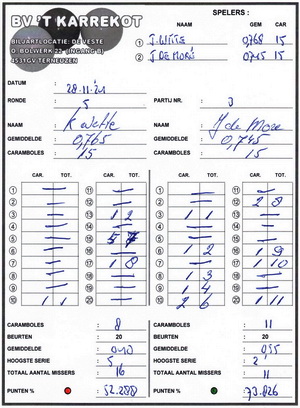 BV.'T KARREKOT
BILJARTLOCATIE: DE VESTE
O. BOLWERK 22 (INGANG B)
4531GV TERNEUZEN
SPELERS :
NAAM GEM CAR
1 J. WITTE 0,768 15
2 J DE MORÉ 0,745 15
DATUM : 28-11-'21
RONDE : 5 PARTIJ NR. : 3
NAAM : K Witte J de More
GEMIDDELDE : 0,765 : 0,745
CARAMBOLES : 15 : 15
CAR. TOT. CAR. TOT. CAR. TOT. CAR. TOT.
1 — 11 — 1 — 11 —
2 — 12 — 2 — 12 2 8
3 — 13 1 2 3 — 13 —
4 — 14 — 4 — 14 —
5 — 15 5 7 5 — 15 —
6 — 16 — 6 1 2 16 1 9
7 — 17 1 8 7 — 17 1 10
8 — 18 — 8 1 3 18 —
9 — 19 — 9 1 4 19 —
10 1 1 20 — 10 2 6 20 1 11
CARAMBOLES : 8 CARAMBOLES : 11
BEURTEN : 20 BEURTEN : 20
GEMIDDELDE : 0,40 GEMIDDELDE : 0,55
HOOGSTE SERIE : 5 HOOGSTE SERIE : 2
TOTAAL AANTAL MISSERS : 16 TOTAAL AANTAL MISSERS :
PUNTEN % : 52.288 PUNTEN % : 73.826